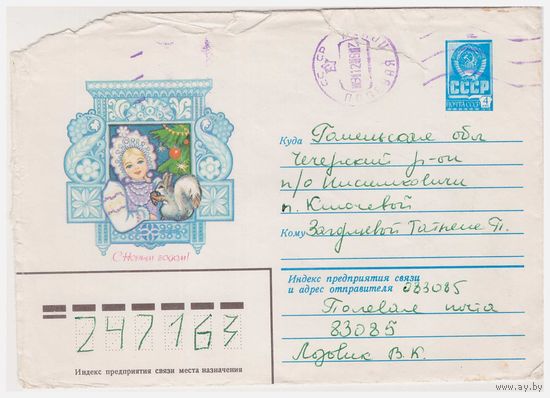 СССР
ПОЧТА СССР
4
Куда Гомельская обл
Чечерский р-он
п/о
п. Ключевой
Кому Татьяне П.
С Новым годом!
Индекс предприятия связи
и адрес отправителя 283085
Полевая почта
83085
Лодвик В.К.
247163
Индекс предприятия связи места назначения
www.ay.by